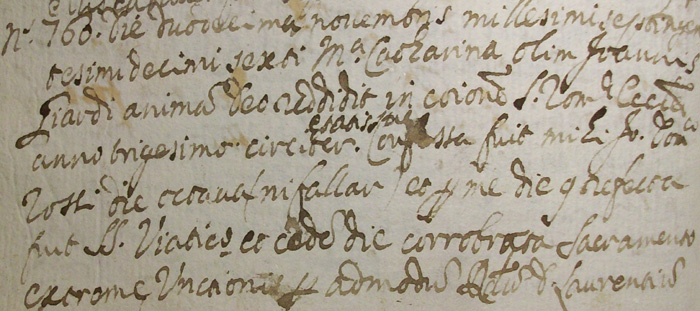 N.º 760. Die duodecima novembris millesimi sexcen
tesimi decimi sexti M.ª Catharina olim Joannis
animã Deo reddidit in coionẽ S. Rom.ẽ Ecc.
anno trigesimo circiter. Confessa fuit mihi Jo.
Rosti die octava (ni fallar) et p me die 9 refecta
fuit SS. Viatico et eadẽ die corrobrata Sacramento
extreme Unctionis p admodũ Rdũ D. Laurentiũ